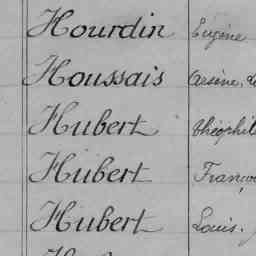 Hourdin Eugène
Houssais Arsène, 
Hubert Théophil
Hubert Franço
Hubert Louis.